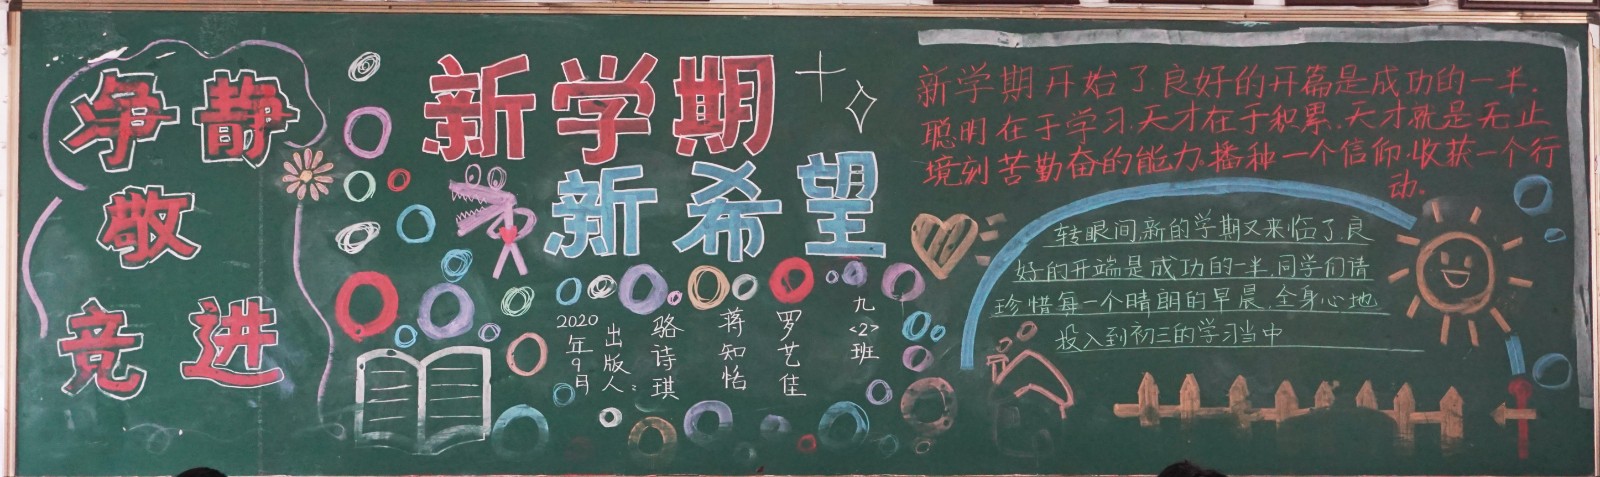 净 静
敬
竞 进
新学期
新希望
九<2>班
罗艺佳
蒋知恬
骆诗琪
出版人:
2020年9月
新学期开始了.良好的开篇是成功的一半.
聪明在于学习.天才在于积累.天才就是无止
境刻苦勤奋的能力.播种一个信仰.收获一个行
动。
转眼间.新的学期又来临了.良
好的开端是成功的一半.同学们请
珍惜每一个晴朗的早晨.全身心地
投入到初三的学习当中